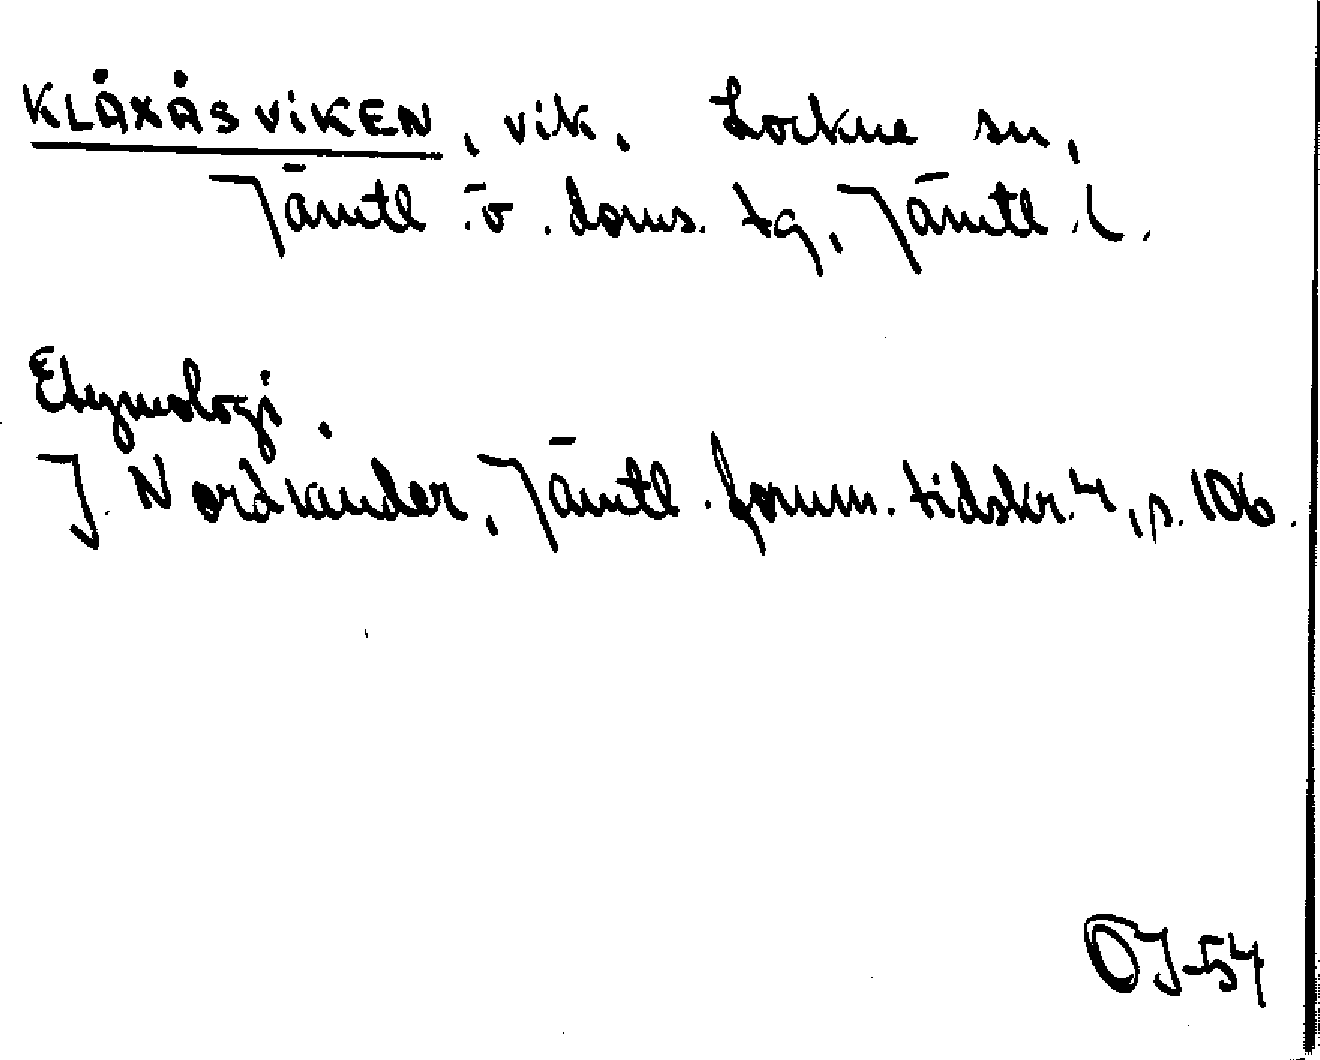 KLÅXÅSVIKEN, vik. Lockne sn,
Jämtl. ö. doms. tg, Jämtl. l.
Etymologi.
J. Nordlander, Jämtl. fornm. tidskr. 4, s. 106.
OJ-54